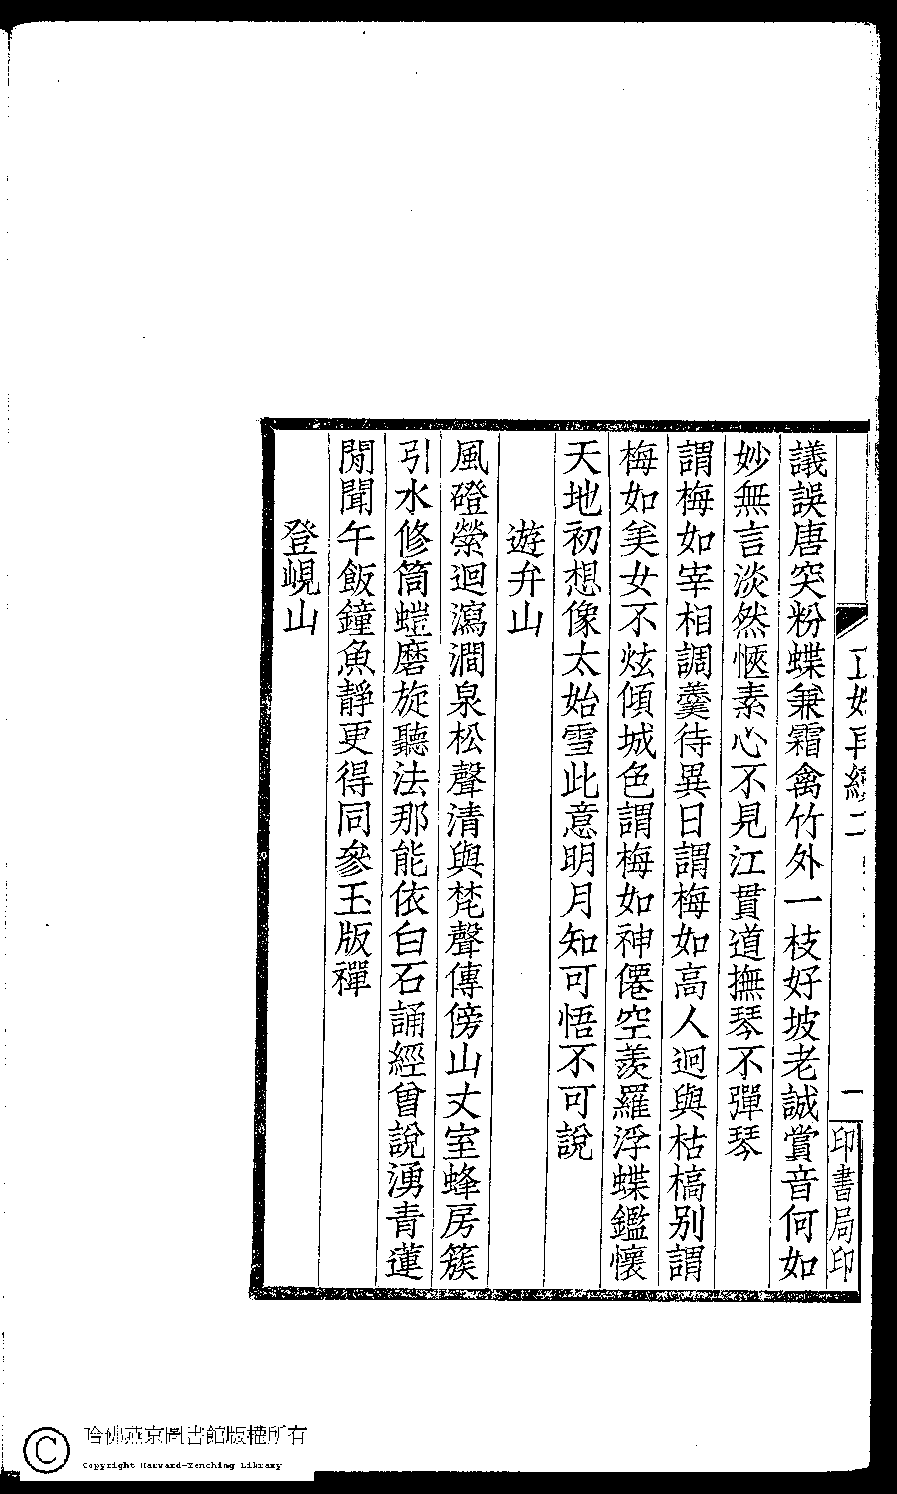 議誤唐突粉蝶兼霜禽竹外一枝好坡老誠賞音何如
妙無言淡然愜素心不見江貫道撫琴不彈琴
謂梅如宰相調羹待異日謂梅如高人迥與枯槁別謂
梅如美女不炫傾城色謂梅如神僊空羨羅浮蝶鑑懷
天地初想像太始雪此意明月知可悟不可說
遊弁山
風磴縈迴瀉澗泉松聲清與梵聲傳傍山丈室蜂房簇
引水修筒螘磨旋聽法那能依白石誦經曾說湧青蓮
閒聞午飯鐘魚靜更得同參玉版禪
登峴山
再續二
一
印書局印
哈佛燕京圖書館版權所有
Copyright Harvard-Yenching Library